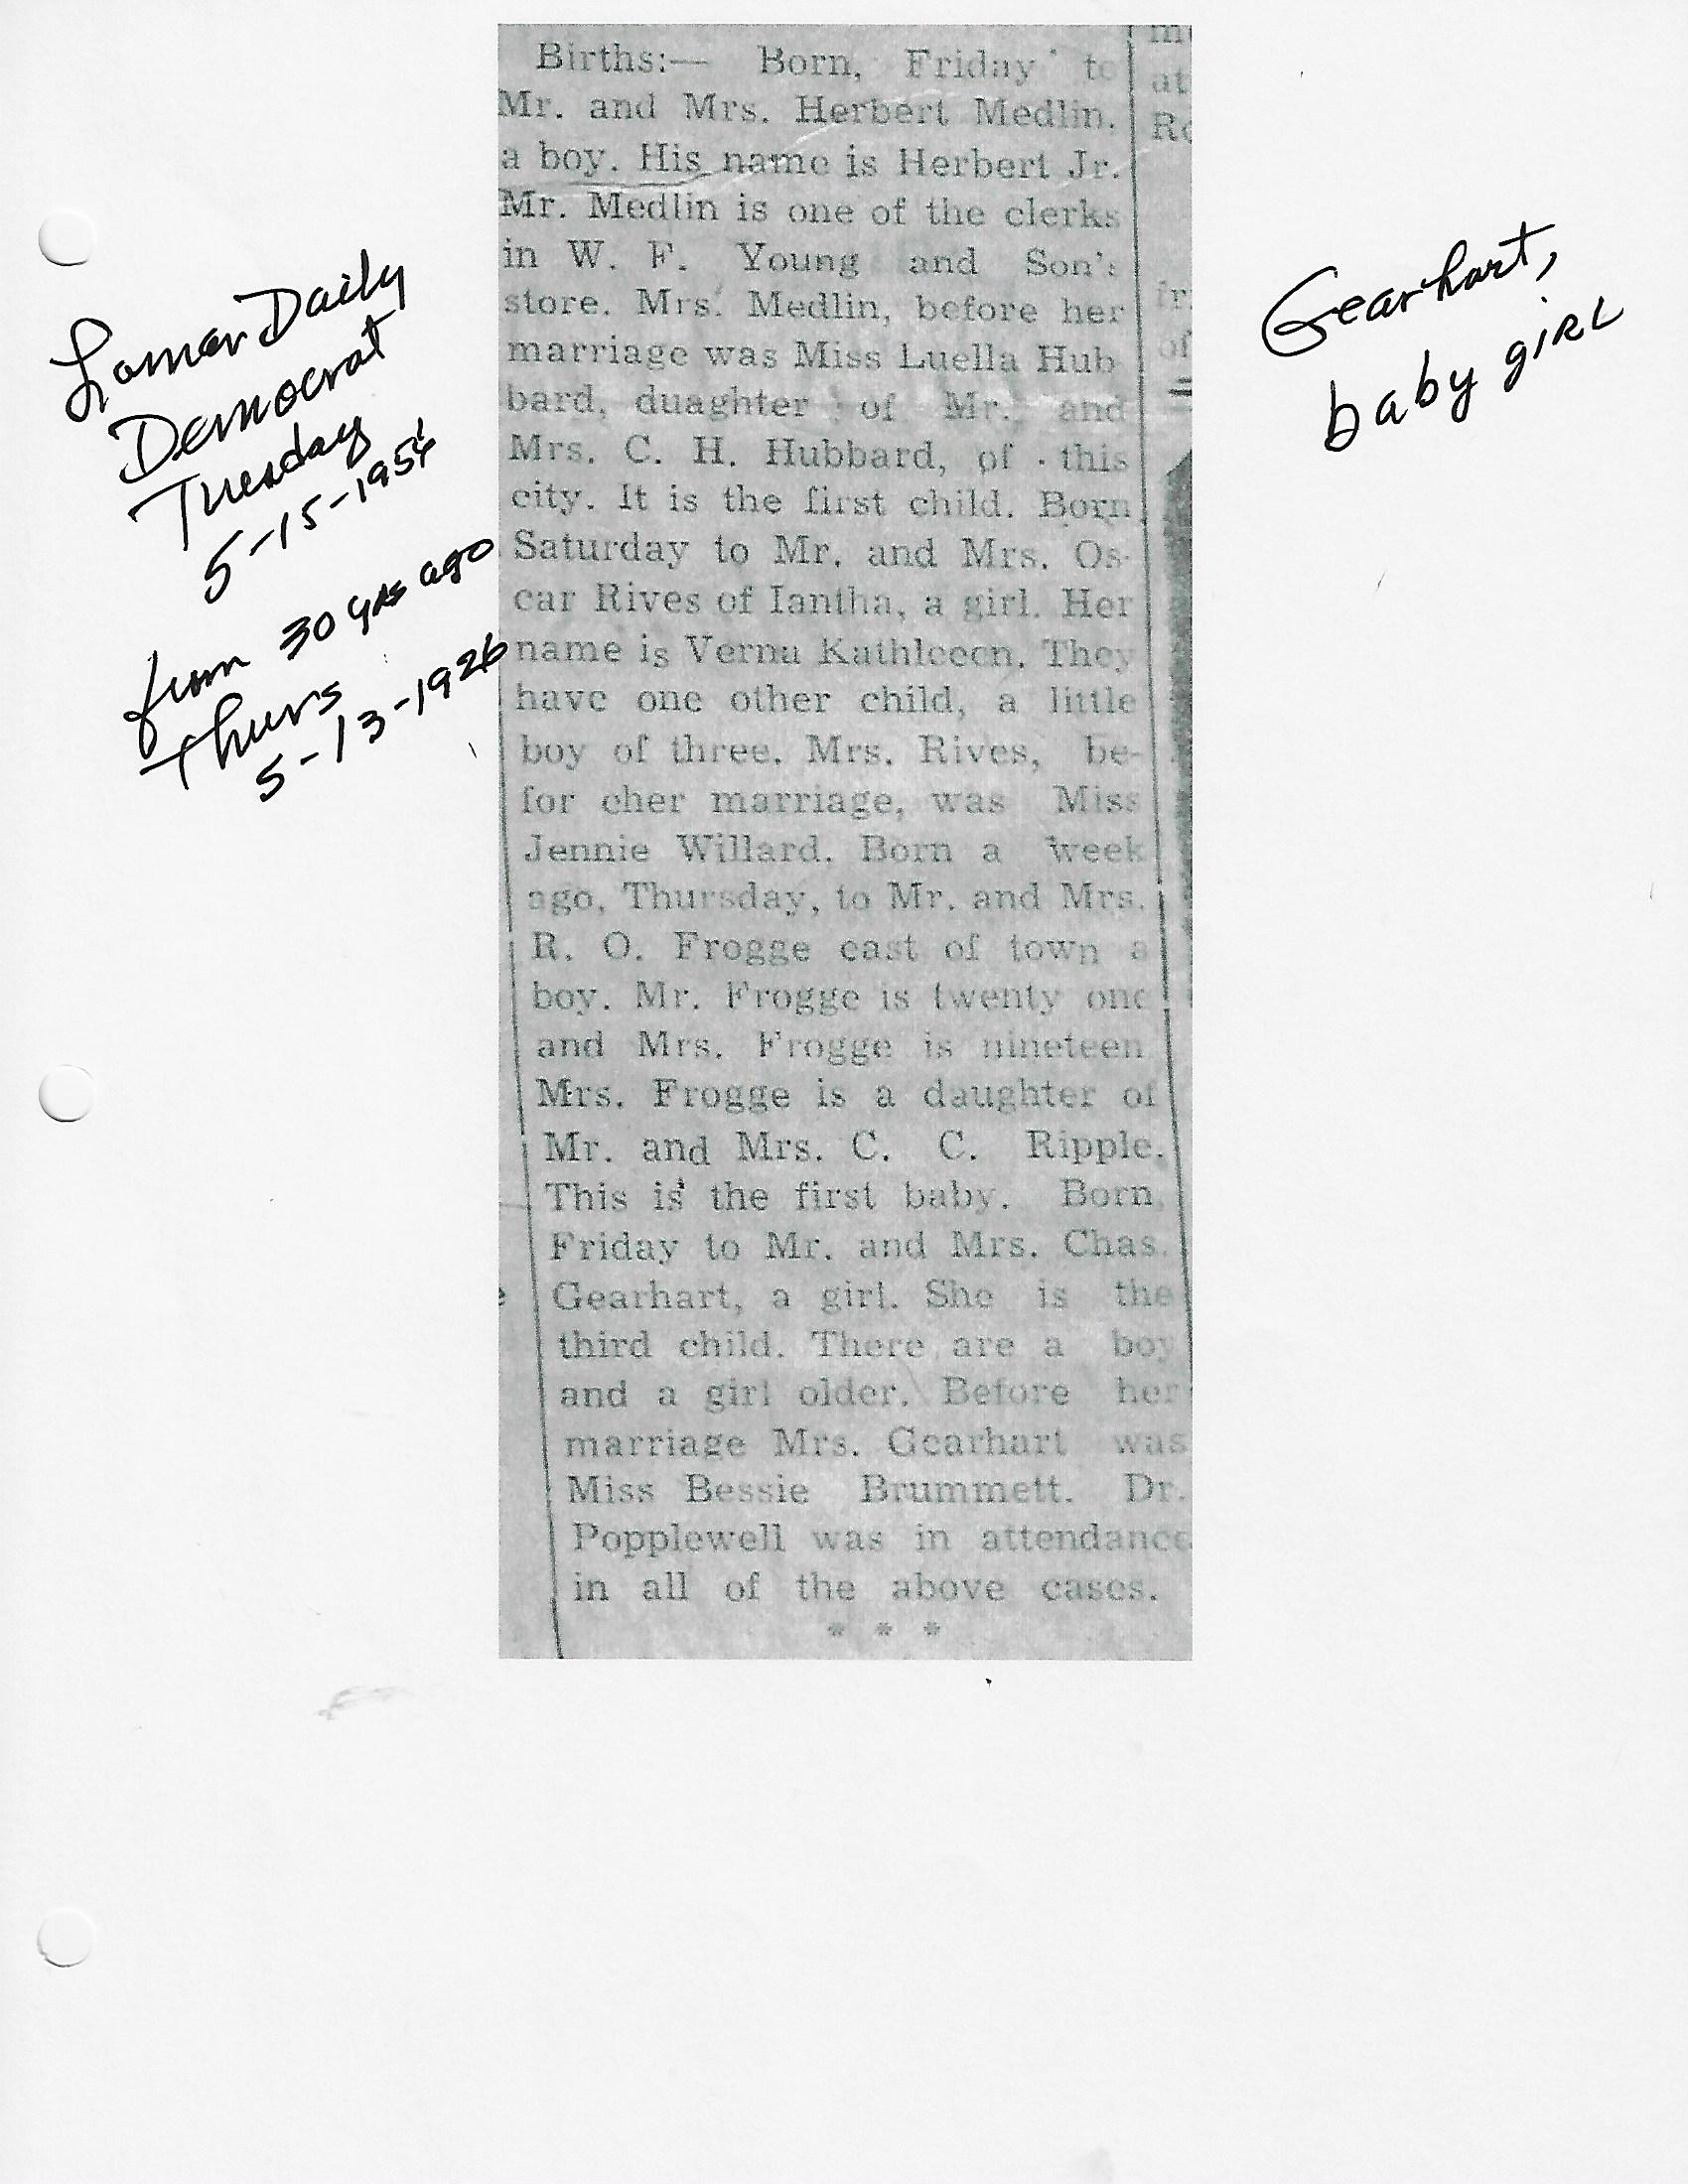 Births:— Born, Friday to
Mr. and Mrs. Herbert Medlin,
a boy. His name is Herbert Jr.
Mr. Medlin is one of the clerks
in W. F. Young and Son's
store. Mrs. Medlin, before her
marriage was Miss Luella Hub
bard, duaghter of Mr. and
Mrs. C. H. Hubbard, of this
city. It is the first child. Born
Saturday to Mr. and Mrs. Os-
car Rives of Iantha, a girl. Her
name is Verna Kathleeen. They
have one other child, a little
boy of three. Mrs. Rives, be-
for cher marriage, was Miss
Jennie Willard. Born a week
ago, Thursday, to Mr. and Mrs.
R. O. Frogge east of town a
boy. Mr. Frogge is twenty one
and Mrs. Frogge is nineteen
Mrs. Frogge is a daughter of
Mr. and Mrs. C. C. Ripple.
This is the first baby. Born,
Friday to Mr. and Mrs. Chas.
Gearhart, a girl. She is the
third child. There are a boy
and a girl older. Before her
marriage Mrs. Gearhart was
Miss Bessie Brummett. Dr.
Popplewell was in attendance
in all of the above cases.
* * *
Lamar Daily
Democrat
Tuesday
5-15-195
from 30 yrs ago
Thurs
5-13-1926
Gearhart,
baby girl